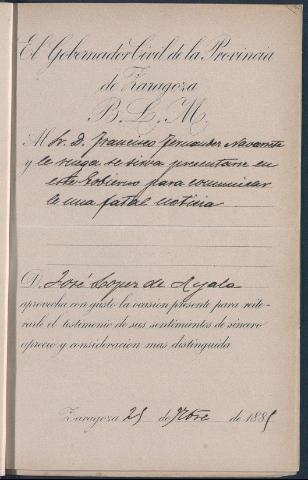 El Gobernador Civil de la Provincia
de Zaragoza
B. L. M.
Al Sr. D. Francisco Fernandez Navarrete
y le ruega se sirva presentarse en
este Gobierno para comunicar
le una fatal noticia
D. José Lopez de Ayala
aprovecha con gusto la ocasion presente para reite-
rarle el testimonio de sus sentimientos de sincero
aprecio y consideracion mas distinguida
Zaragoza 25 de de 1885